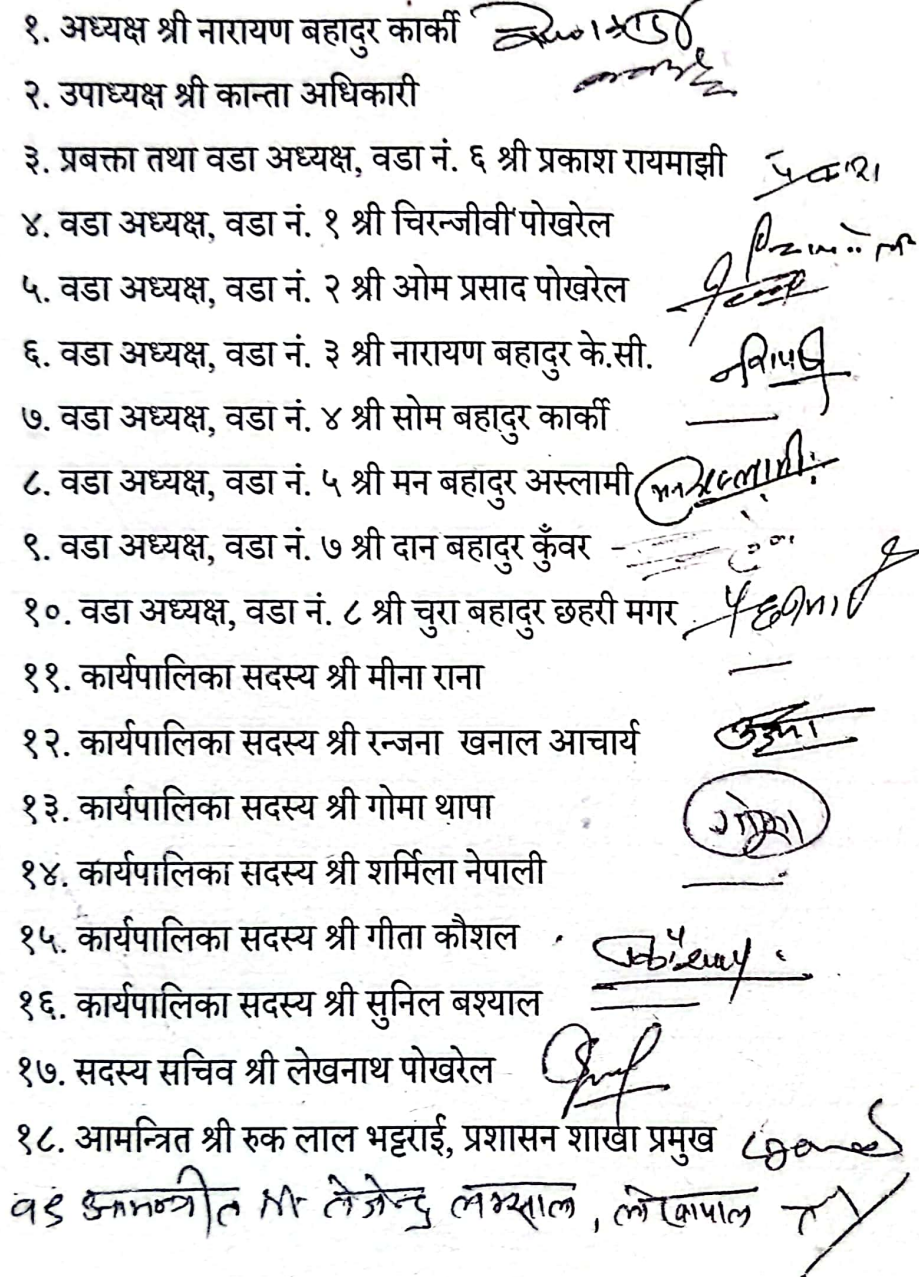 १. अध्यक्ष श्री नारायण बहादुर कार्की
२. उपाध्यक्ष श्री कान्ता अधिकारी
३. प्रबक्ता तथा वडा अध्यक्ष, वडा नं. ६ श्री प्रकाश रायमाझी प्रकाश
४. वडा अध्यक्ष, वडा नं. १ श्री चिरन्जीवी पोखरेल
५. वडा अध्यक्ष, वडा नं. २ श्री ओम प्रसाद पोखरेल
६. वडा अध्यक्ष, वडा नं. ३ श्री नारायण बहादुर के.सी.
७. वडा अध्यक्ष, वडा नं. ४ श्री सोम बहादुर कार्की
८. वडा अध्यक्ष, वडा नं. ५ श्री मन बहादुर अस्लामी
९. वडा अध्यक्ष, वडा नं. ७ श्री दान बहादुर कुँवर
१०. वडा अध्यक्ष, वडा नं. ८ श्री चुरा बहादुर छहरी मगर
११. कार्यपालिका सदस्य श्री मीना राना
१२. कार्यपालिका सदस्य श्री रन्जना खनाल आचार्य
१३. कार्यपालिका सदस्य श्री गोमा थापा गोमा
१४. कार्यपालिका सदस्य श्री शर्मिला नेपाली
१५. कार्यपालिका सदस्य श्री गीता कौशल
१६. कार्यपालिका सदस्य श्री सुनिल बश्याल
१७. सदस्य सचिव श्री लेखनाथ पोखरेल
१८. आमन्त्रित श्री रुक लाल भट्टराई, प्रशासन शाखा प्रमुख
१९ आमन्त्रीत श्री तेजेन्द्र लम्साल, लेखापाल